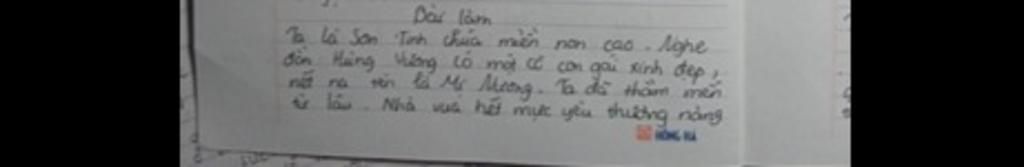 Bài làm
Ta là Sơn Tinh chúa miền non cao. Nghe
đồn Hùng Vương có một cô con gái xinh đẹp,
nết na tên là Mị Nương. Ta đã thầm mến
từ lâu. Nhà vua hết mực yêu thương nàng
HỒNG HÀ